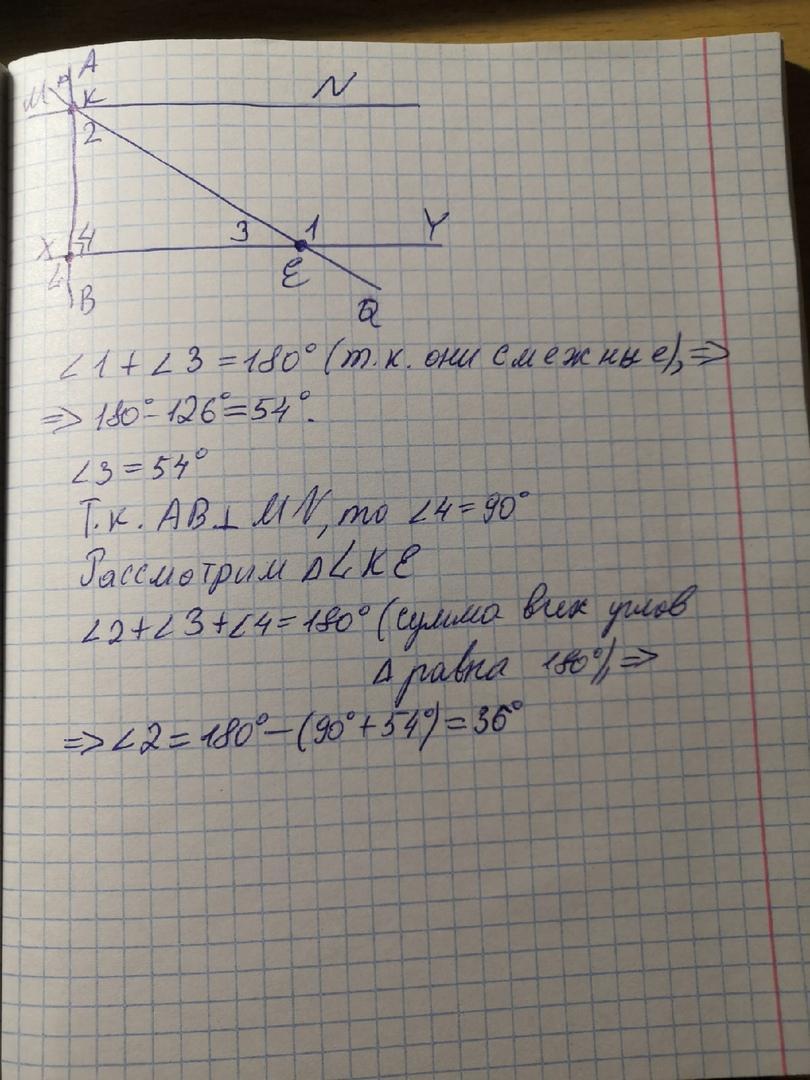 A
M
K
N
2
X
4
3
1
Y
L
E
B
Q
∠1 + ∠3 = 180° (т.к. они смежные), =>
=> 180° - 126° = 54°.
∠3 = 54°
Т.к. AB ⊥ MN, то ∠4 = 90°
Рассмотрим ΔLKE
∠2 + ∠3 + ∠4 = 180° (сумма всех углов
Δ равна 180°), =>
=> ∠2 = 180° - (90° + 54°) = 36°